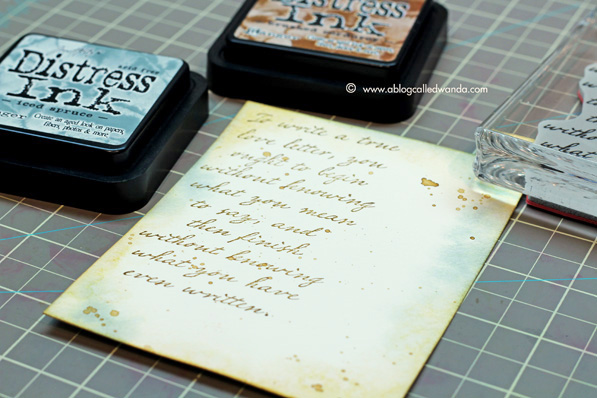 Distress
Ink
Distress
Ink
iced spruce
Create an aged look on papers,
fibers, photos & more.
© www.ablogcalledwanda.com
To write a true
love letter, you
ought to begin
without knowing
what you mean
to say, and
then finish
without knowing
what you have
even written.
what